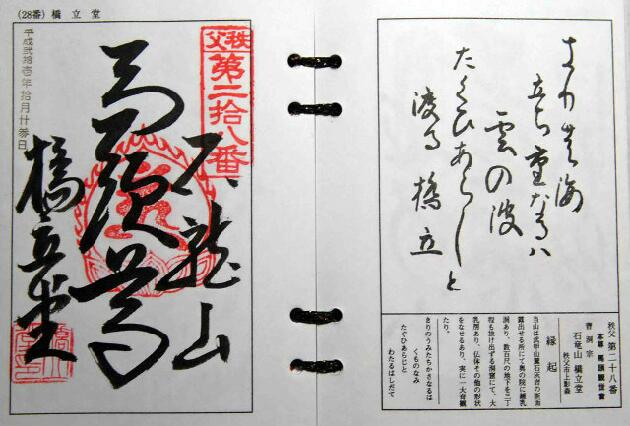 (28番) 橋立堂
平成弐拾壱年拾月廿参日
秩父
第二拾八番
石龍山
馬頭尊
橋立堂
きりの海
立ち重なるハ
雲の波
たくひあらしと
渡る橋立
秩父第二十八番
本尊 馬頭観世音
曹洞宗
石竜山 橋立堂
秩父市上影森
縁起
当山は武甲山麓石灰岩の断崖
露出せる所にて奥の院に鍾乳
洞あり、数百尺の地下を二丁
程も抜け出ずる洞窟にて、大
乳房あり、仏体その他の形状
をなせるあり、実に一大奇観
たり。
きりのうみたちかさなるは
くものなみ
たぐひあらじと
わたるはしだて